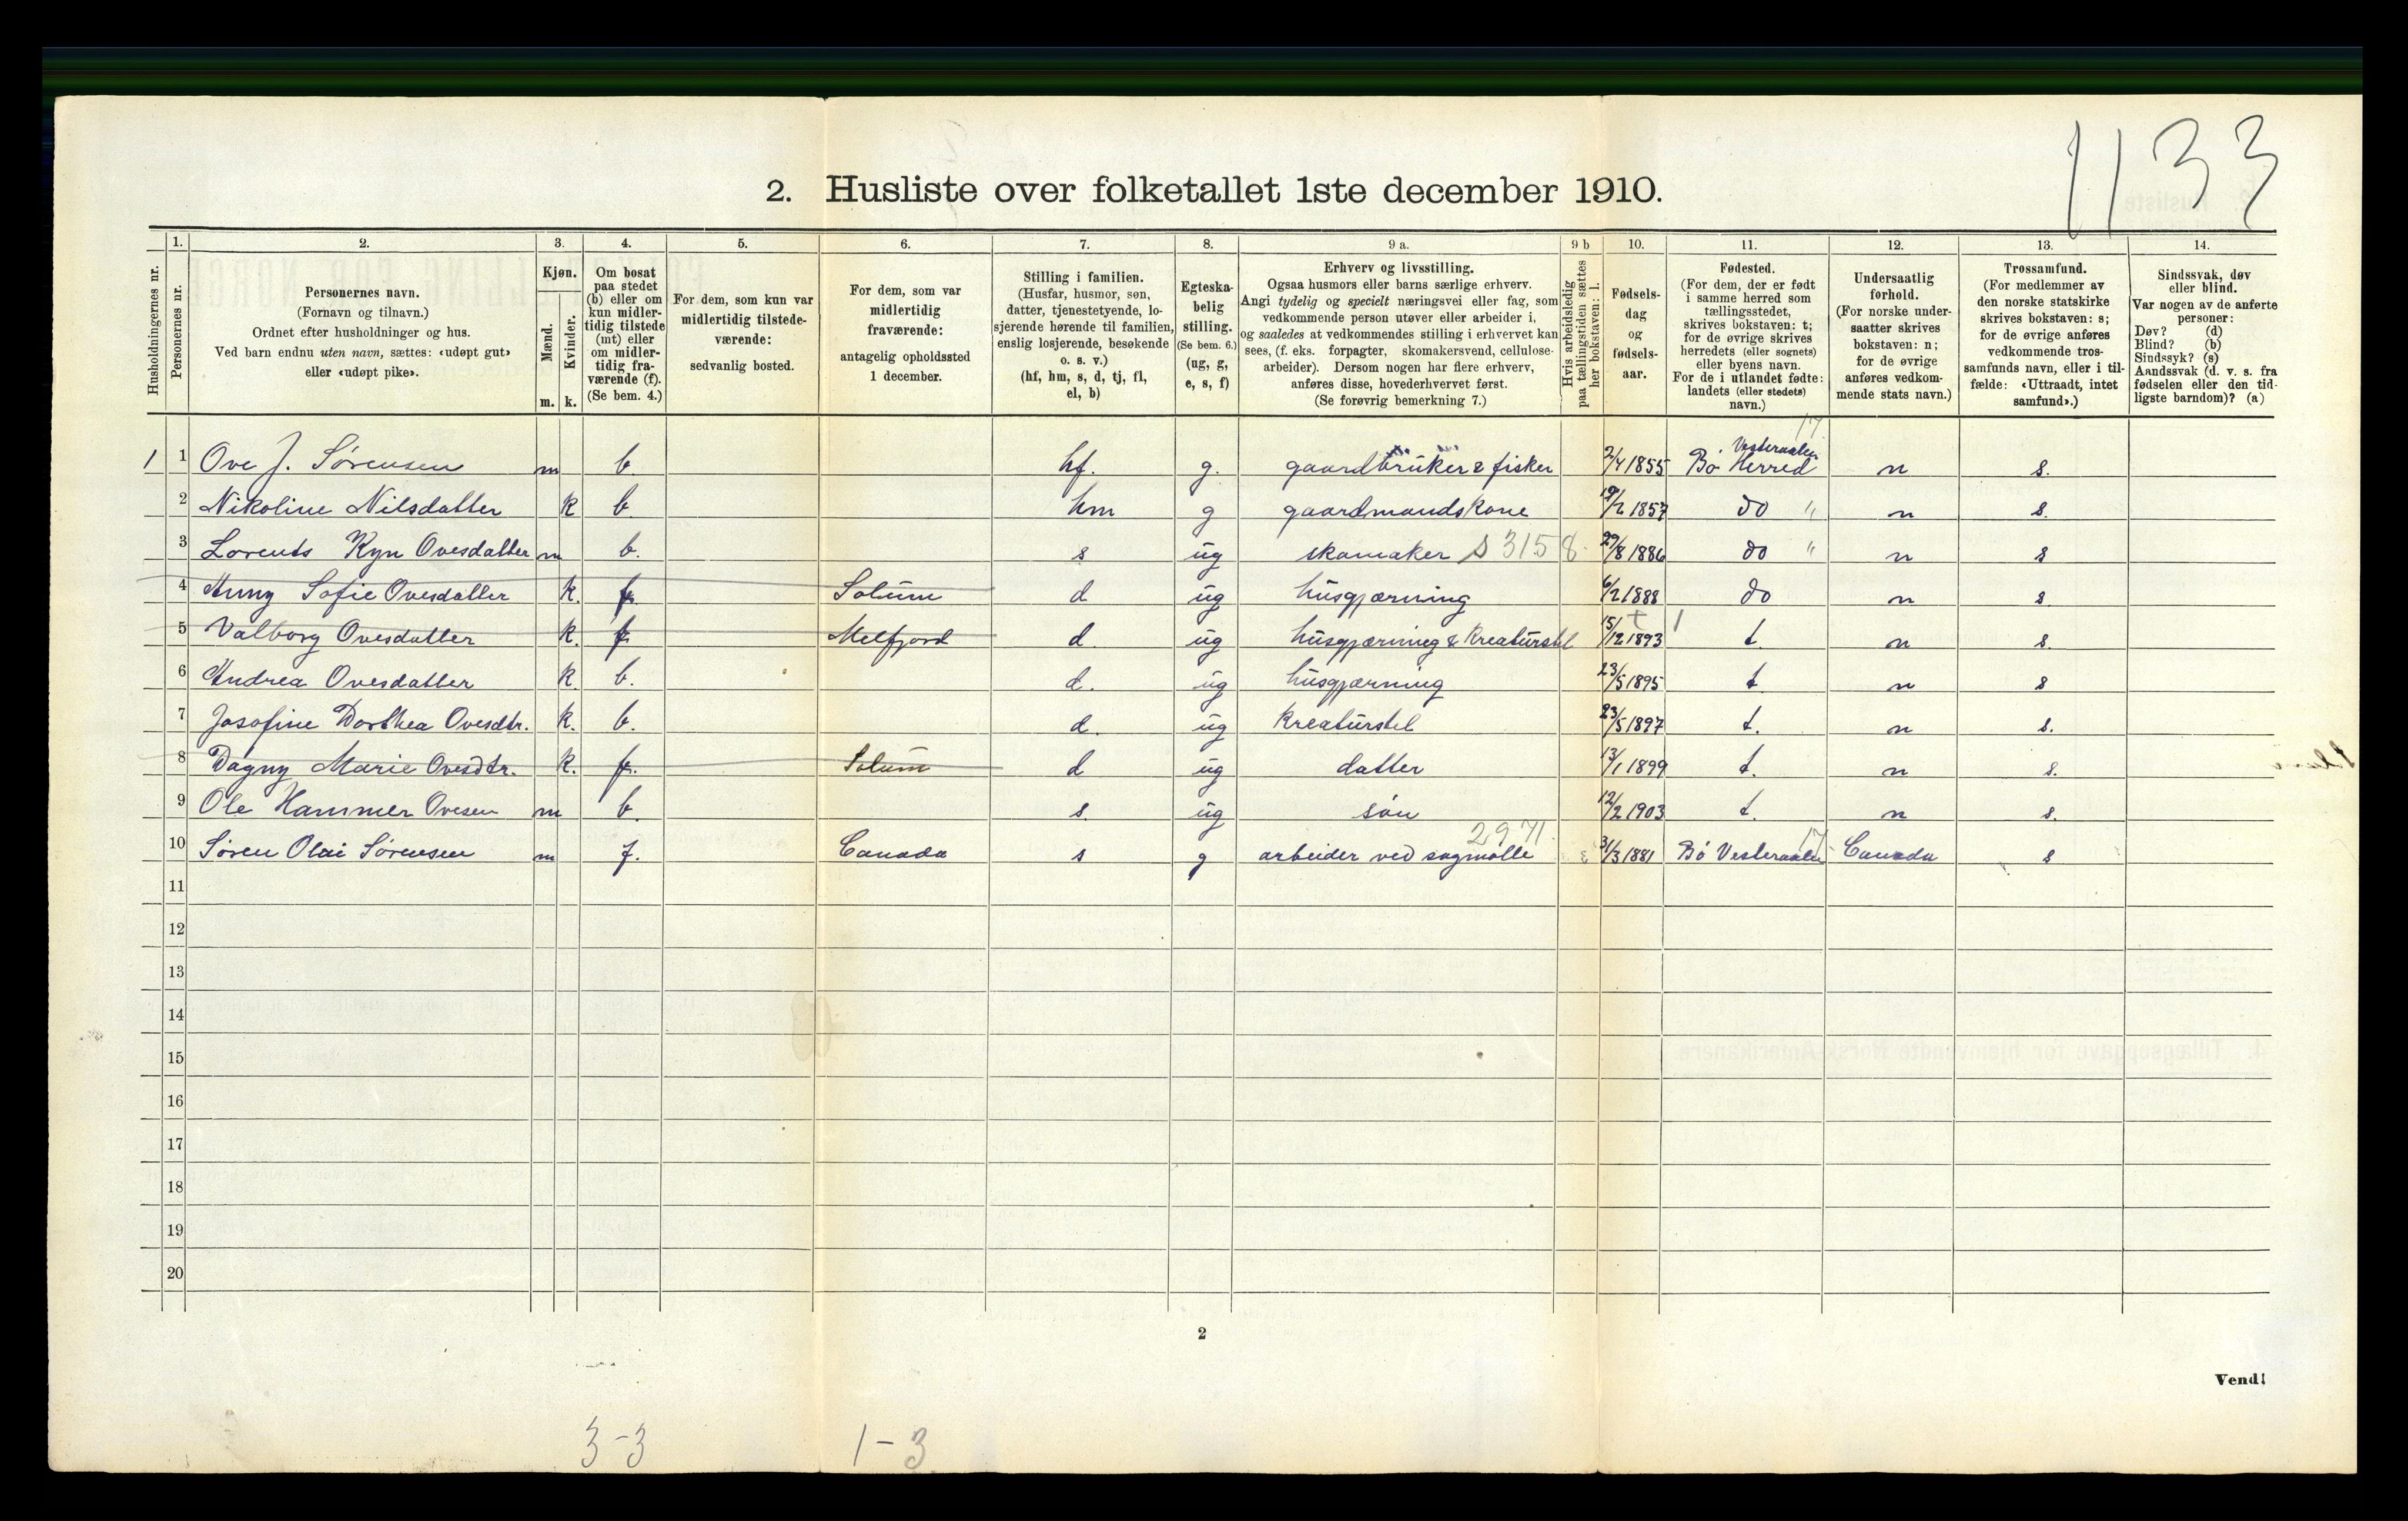 1133
2. Husliste over folketallet 1ste december 1910.
Husholdningernes nr.
1. Personernes nr.
2. Personernes navn.
(Fornavn og tilnavn.)
Ordnet efter husholdninger og hus.
Ved barn endnu uten navn, sættes: «udøpt gut»
eller «udøpt pike».
3. Kjøn.
Mænd. m.
Kvinder. k.
4. Om bosat
paa stedet
(b) eller om
kun midler-
tidig tilstede
(mt) eller
om midler-
tidig fra-
værende (f).
(Se bem. 4.)
5. For dem, som kun var
midlertidig tilstede-
værende:
sedvanlig bosted.
6. For dem, som var
midlertidig
fraværende:
antagelig opholdssted
1 december.
7. Stilling i familien.
(Husfar, husmor, søn,
datter, tjenestetyende, lo-
sjerende hørende til familien,
enslig losjerende, besøkende
o. s. v.)
(hf, hm, s, d, tj, fl,
el, b)
8. Egteska-
belig
stilling.
(Se bem. 6.)
(ug, g,
e, s, f)
9 a. Erhverv og livsstilling.
Ogsaa husmors eller barns særlige erhverv.
Angi tydelig og specielt næringsvei eller fag, som
vedkommende person utøver eller arbeider i,
og saaledes at vedkommendes stilling i erhvervet kan
sees, (f. eks. forpagter, skomakersvend, cellulose-
arbeider). Dersom nogen har flere erhverv,
anføres disse, hovederhvervet først.
(Se forøvrig bemerkning 7.)
9 b Hvis arbeidsledig
paa tællingstiden sættes
her bokstaven: l.
10. Fødsels-
dag
og
fødsels-
aar.
11. Fødested.
(For dem, der er født
i samme herred som
tællingsstedet,
skrives bokstaven: t;
for de øvrige skrives
herredets (eller sognets)
eller byens navn.
For de i utlandet fødte:
landets (eller stedets)
navn.)
12. Undersaatlig
forhold.
(For norske under-
saatter skrives
bokstaven: n;
for de øvrige
anføres vedkom-
mende stats navn.)
13. Trossamfund.
(For medlemmer av
den norske statskirke
skrives bokstaven: s;
for de øvrige anføres
vedkommende tros-
samfunds navn, eller i til-
fælde: «Uttraadt, intet
samfund».)
14. Sindssvak, døv
eller blind.
Var nogen av de anførte
personer:
Døv? (d)
Blind? (b)
Sindssyk? (s)
Aandssvak (d. v. s. fra
fødselen eller den tid-
ligste barndom)? (a)
17
1 1 Ove J. Sørensen m b. hf. g. gaardbruker & fisker 2/4 1855 Bø Vesteraalen Herred n s.
2 Nikoline Nilsdatter k b. hm g gaardmandskone 19/2 1857 do " n s.
3 Lorents Kyn Ovesdatter m b. s ug skomaker S 3158 29/8 1886 do " n s
4 Anny Sofie Ovesdatter k. f. Solum d ug husgjærning 6/2 1888 do n s.
5 Valborg Ovesdatter k. f. Melfjord d. ug husgjærning & Kreaturstel 15/12 1893 t. n s.
6 Andrea Ovesdatter k. b. d. ug husgjærning 23/5 1895 t. n s
7 Josofine Dorthea Ovesdtr. k. b. d. ug Kreaturstel 23/5 1897 t. n s.
8 Dagny Marie Ovesdtr. k. f. Solum d ug datter 13/1 1899 t. n s.
9 Ole Hammer Ovesen m b. s. ug søn 12/2 1903 t. n s.
2971. 17
10 Søren Olai Sørensen m f. Canada s g arbeider ved sagmølle 31/3 1881 Bø Vesteraalen Canada s
11
12
13
14
15
16
17
18
19
20
2
Vend!
3-3 1-3